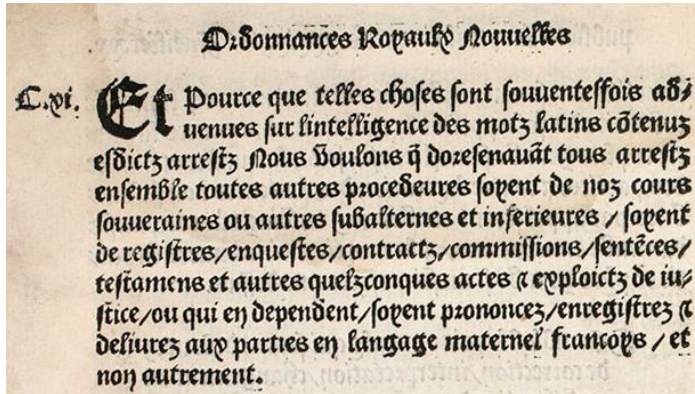 Ordonnances Royaulx Nouuelles
C.xi. Et Pource que telles choses sont souuentesfois ad/
uenues sur lintelligence des motz latins cõtenuz
esdictz arrestz Nous voulons q̃ doresenauãt tous arrestz
ensemble toutes autres procedeures soyent de noz cours
souueraines ou autres subalternes et inferieures / soyent
de registres/enquestes/contractz/commissions/sentẽces/
testamens et autres quelzconques actes ⁊ exploictz de iu/
stice/ou qui en dependent/soyent prononcez/enregistrez ⁊
deliurez aux parties en langage maternel francoys / et
non autrement.